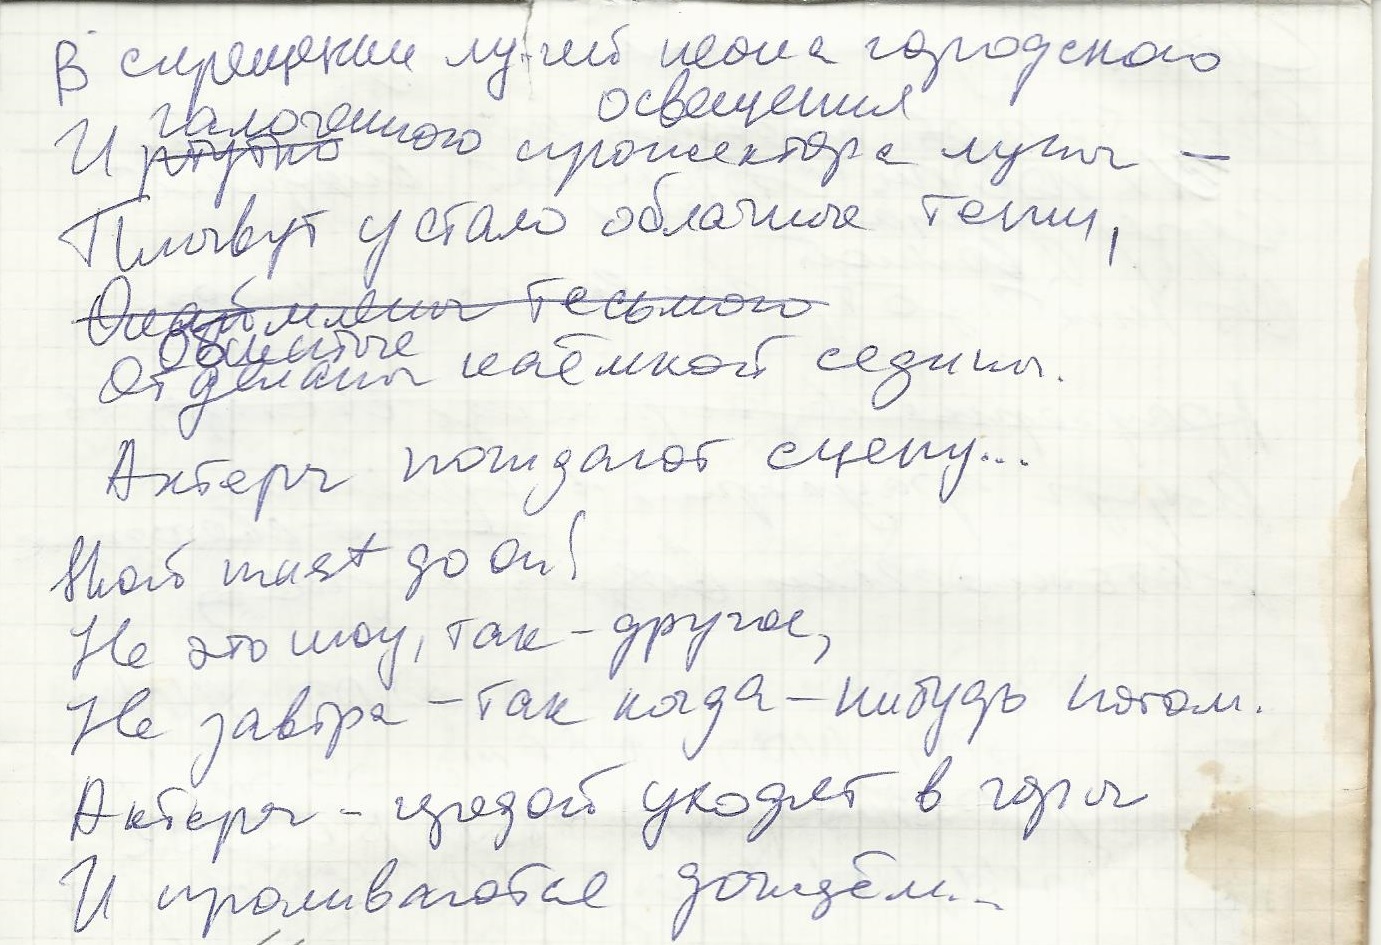 В скрещении лучей неона городского
освещения
галогенного
И ртутно прожектора луны —
Плывут устало облачные тени,
Окаймлены тесьмою
Обшитые
Отделаны каёмкой седины.
Актеры покидают сцену...
Show must go on!
Не это шоу, так – другое,
Не завтра – так когда-нибудь потом.
Актеры – грядой уходят в горы
И проливаются дождём...